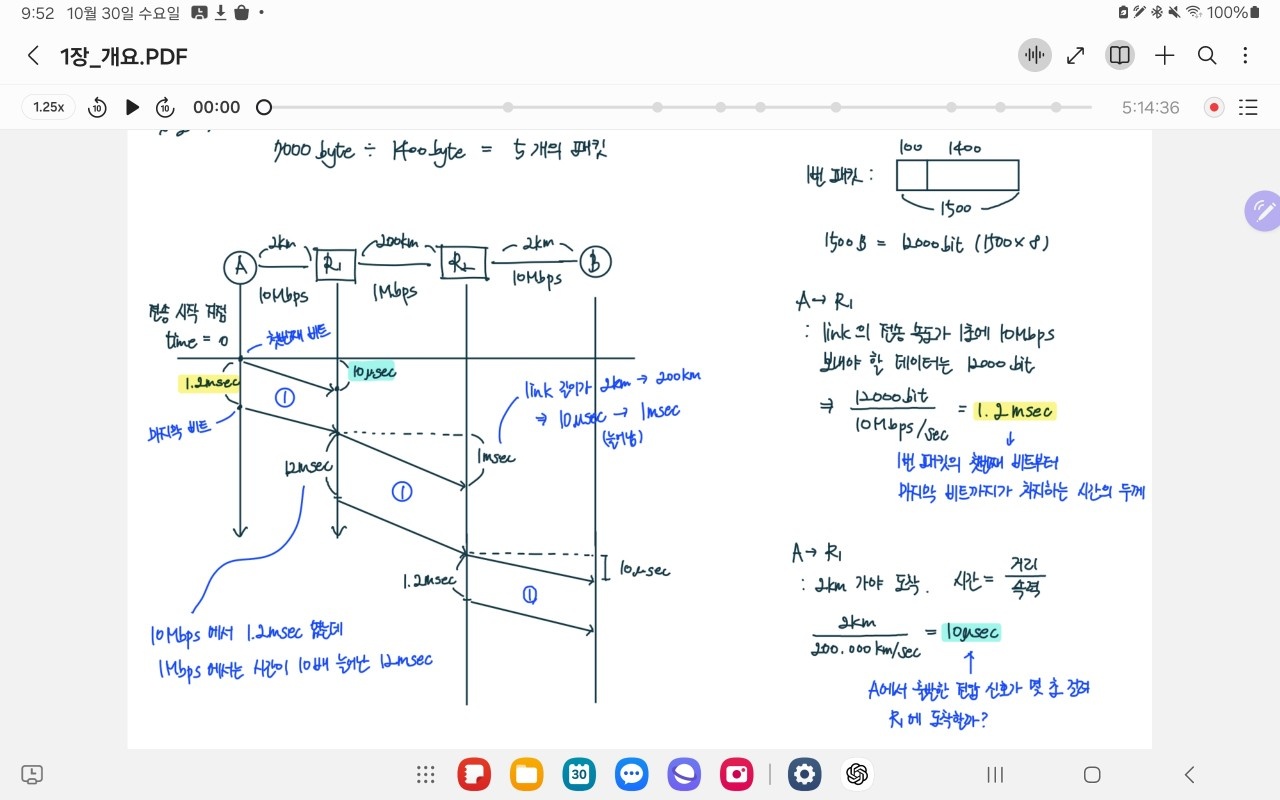 9:52 10월 30일 수요일
100%
1장_개요.PDF
1.25x 10 10 00:00 5:14:36
7000 byte ÷ 1400 byte = 5개의 패킷
100 1400
1번 패킷 :
1500
1500B = 12000 bit (1500×8)
2km 200km 2km
A R₁ R₂ B
10Mbps 1Mbps 10Mbps
전송 시작 지점
time = 0
첫번째 비트
1.2msec
10μsec
①
마지막 비트
link 길이가 2km → 200km
⇒ 10μsec → 1msec
(늘어남)
1msec
12msec
①
10μsec
1.2msec
①
10Mbps 에서 1.2msec 였는데
1Mbps 에서는 시간이 10배 늘어난 12msec
A → R₁
: link의 전송 속도가 1초에 10Mbps
보내야 할 데이터는 12000 bit
⇒ 12000 bit / 10Mbps/sec = 1.2msec
↓
1번 패킷의 첫번째 비트부터
마지막 비트까지가 차지하는 시간의 두께
A → R₁
: 2km 가야 도착. 시간 = 거리 / 속력
2km / 200.000 km/sec = 10μsec
↑
A에서 출발한 전압 신호가 몇 초 걸려
R₁에 도착할까?
30